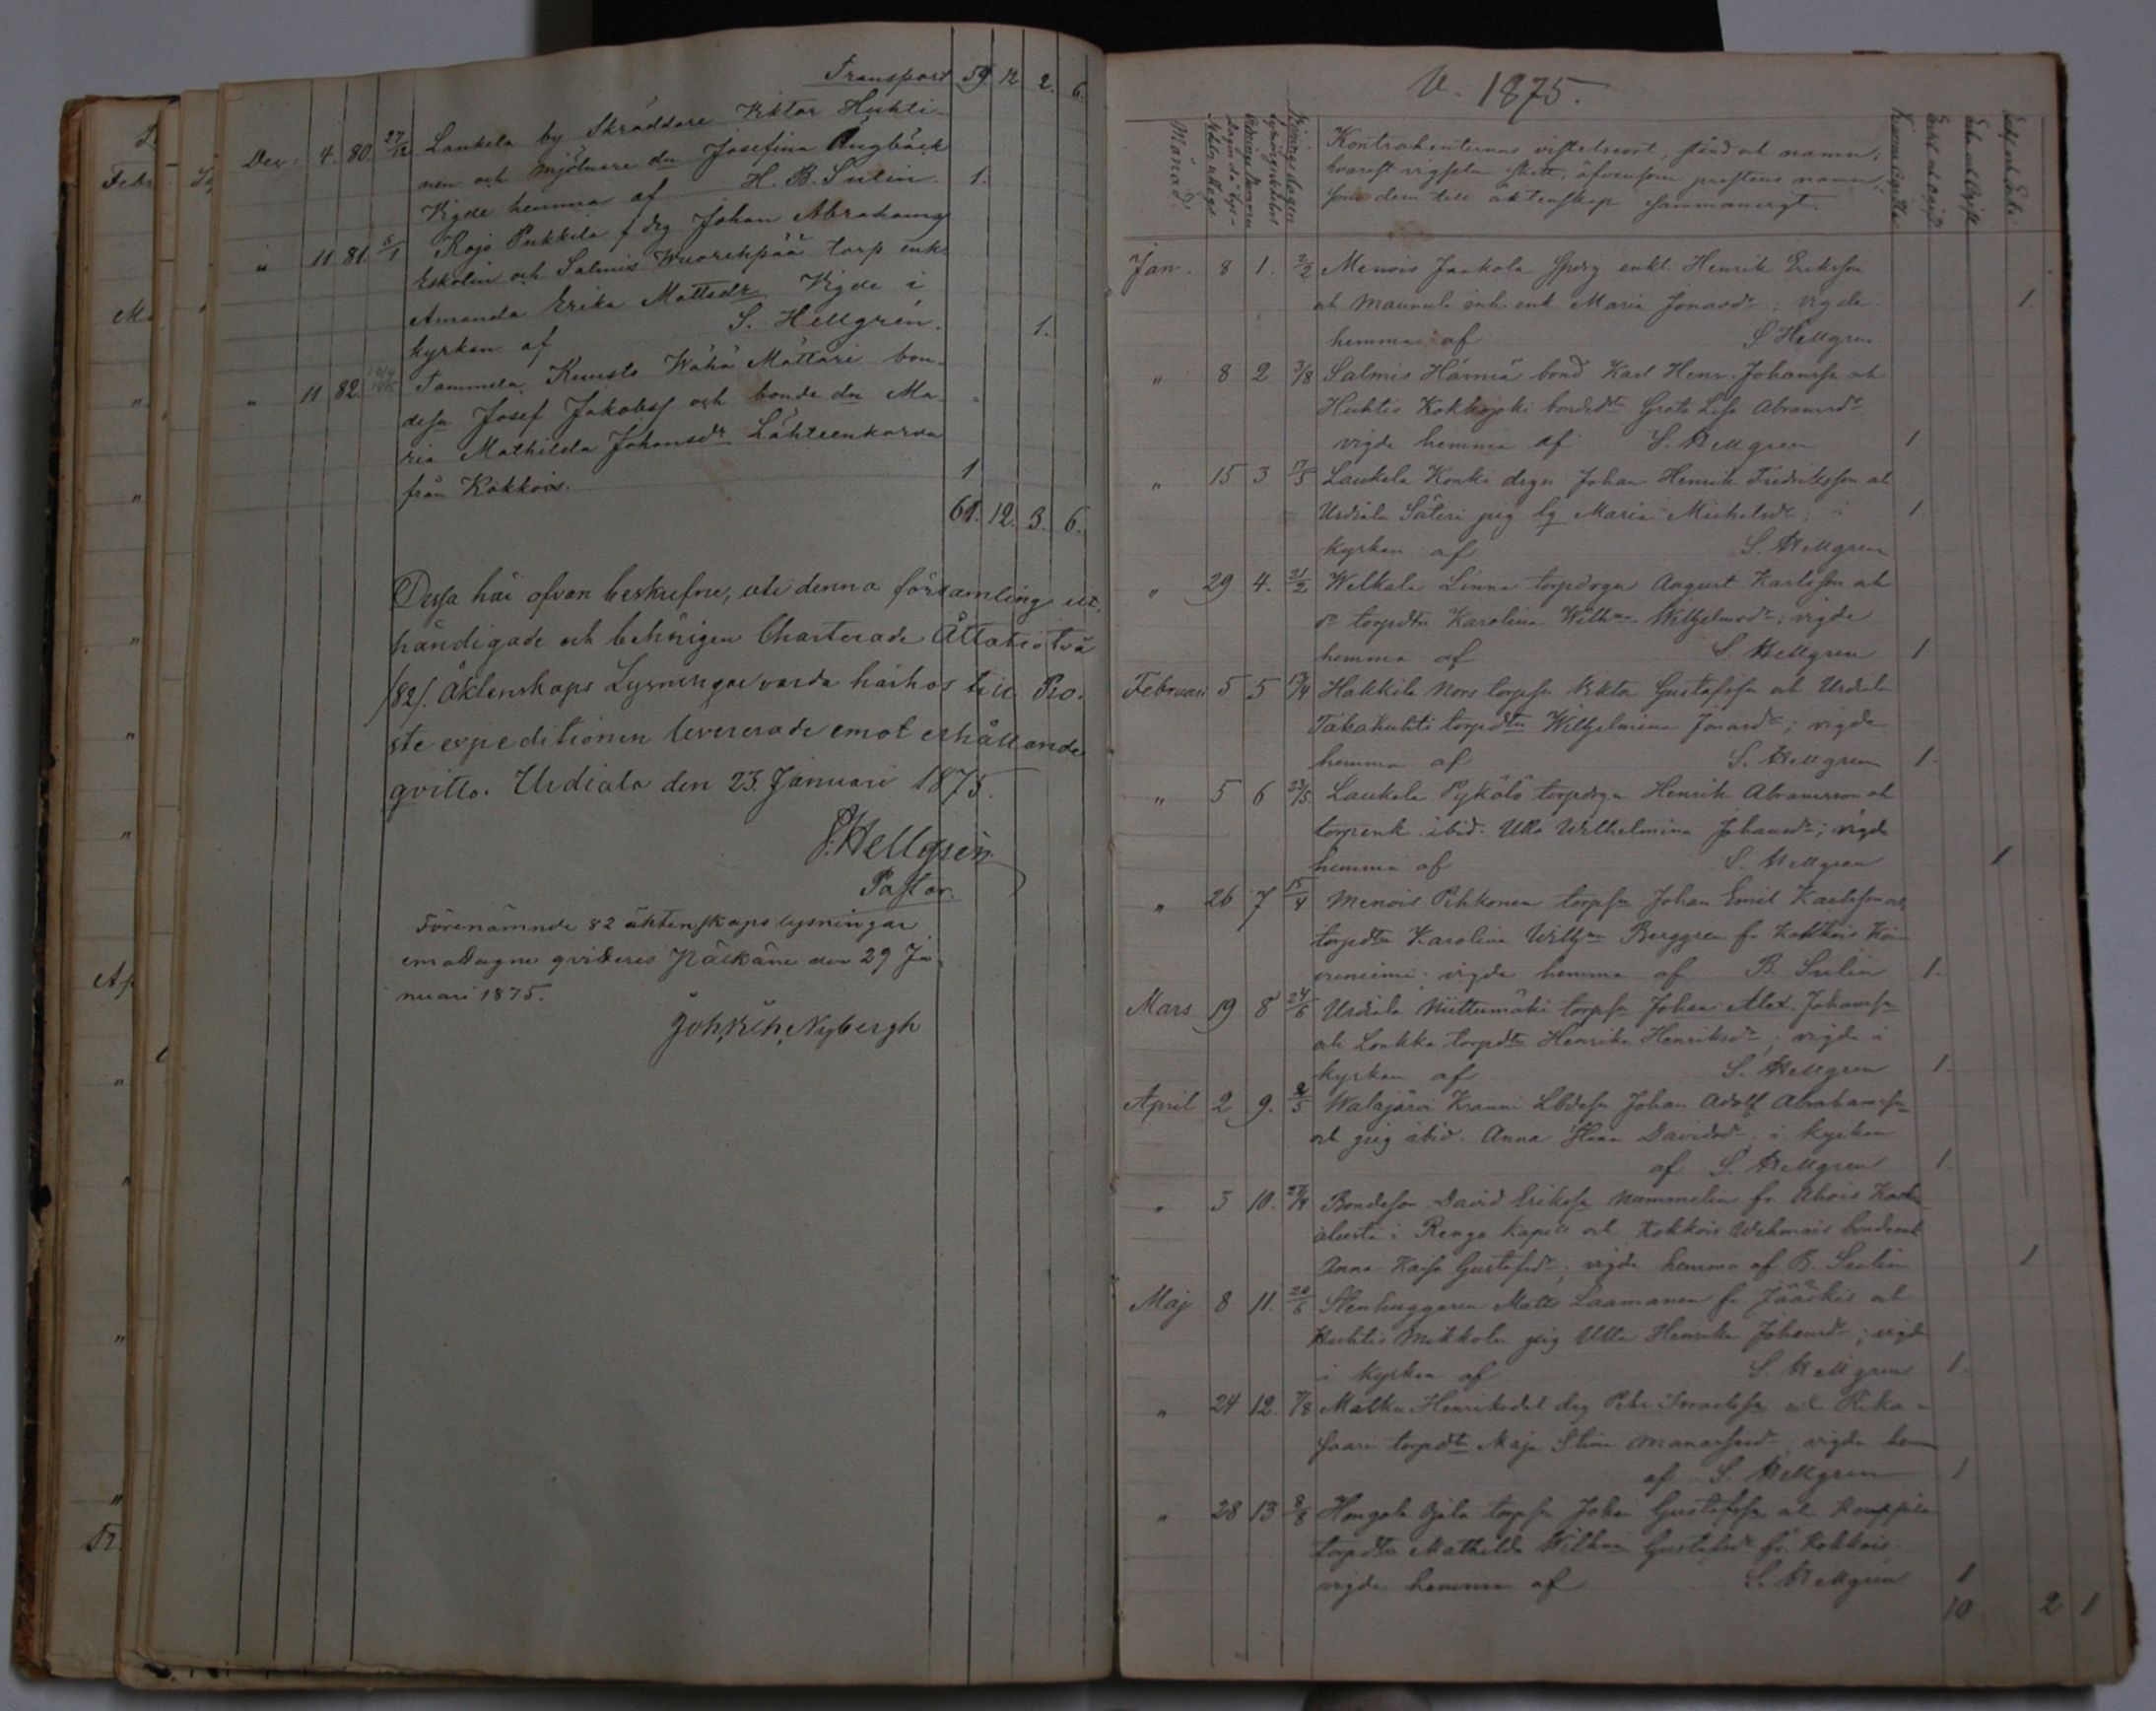 Transport 59. 12 2. 6.
Dec: 4. 80. 27/12 Laukela by Skräddare Viktor Huhti-
nen och mjölnare dn Josefina Ängbäck
Vigde hemma af H. B. Sulin. 1.
" 11 81. 5/1 Kojo Pukkila f drg Johan Abrahamss
Eskolin och Salmis Wuorenpää torp enk.
Amanda Erika Mattsdr Vigde i
kyrkan af S. Hellgrén. 1.
" 11 82. Tammela Kuusto Wähä Mattari bon-
desn Josef Jakobss och bonde dn Ma-
ria Mathilda Johansdr Lähteenkorva
från Kokkois. 1
61. 12. 3. 6.
Dessa här ofvan beskrefne, uti denna församling ut-
händigade och behörigen Charterade Åttatio två
/82/. Äktenskaps Lysningar varda härhos till Pro-
ste expeditionen levererade emot erhållande
qvitto. Urdiala den 23. Januari 1875.
S. Hellgrén
Pastor.
Förenämnde 82 äktenskaps lysningar
emottagne qvitteres Pälkäne den 29 Ja-
nuari 1875.
Joh. Nybergh
V. 1875.
Månad.
Vigningsdagen
Kontrahenternas vistelseort, stånd och namn;
hvarest vigseln skett, äfvensom prestens namn,
som dem till äktenskap sammanvigt.
Jan. 8 1. 2/2 Menois Jaakola enkl. Henrik Eriksson
och Maunula inh. enk. Maria Jonasdr; vigde 1.
hemma af S. Hellgren
" 8 2 3/8 Salmis Härmä bond Karl Henr. Johansson och
Huhtis Kokkojoki bondedtr Greta Lisa Abramsdr
vigde hemma af S. Hellgren 1
" 15 3 17/5 Laukela Konka drgn Johan Henrik Fredriksson och
Urdiala Säteri pig Maria Michelsdr; i 1.
kyrkan af S. Hellgren
" 29 4. 21/2 Welkala Linna torpdrgn August Karlsson och
do torpdtn Karolina Wilhna Wilhelmsdr; vigde
hemma af S. Hellgren 1
Februari 5 5 Hakkila Nors torpsn Viktor Gustafsson och Urdiala
Takakuhti torpdtn Wilhelmina Jonasdr; vigde
hemma af S. Hellgren 1.
" 5 6 23/5 Laukela Pykälö torpdrgn Henrik Abramsson och
torpenk. ibid. Ulla Wilhelmina Johansdr; vigde
hemma af S. Hellgren 1
" 26 7 15/4 Menois Pihkonen torpsn Johan Emil Karlsson och
torpdtn Karolina Wilhna Berggren fr. Kokkois
vigde hemma af B. Sulin 1.
Mars 19 8 24/6 Urdiala Niittumäki torpsn Johan Alex. Johansson
och Laukka torpdtn Henrika Henriksdr; vigde i
kyrkan af S. Hellgren 1.
April 2 9. Walajärvi Kranni Johan Adolf Abrahamsson
och pig ibid. Anna Davidsdr i kyrkan
af S. Hellgren 1.
" 3 10. Bondeson David Eriksson Nummelin fr. Ahois
i Renga Kapell och Kokkois Wehmais bondeenk
Anna Kaisa Gustafsdr; vigde hemma af B. Sulin 1
Maj 8 11. 20/6 Stenhuggaren Matts Laamanen fr. Jääskis och
Huhtis Mikkola pig Ulla Henrika Johansdr; vigde
i kyrkan af S. Hellgren 1.
" 24 12. 7/8 Matku drg Petr och
torpdtn Maja Stina vigde hem
af S. Hellgren 1
" 28 13 8/8 Hongola torpsn Johan Gustafsson och
torpdtn Mathilda Wilhna Gustafsdr fr. Kokkois.
vigde hemma af S. Hellgren 1
10 2 1